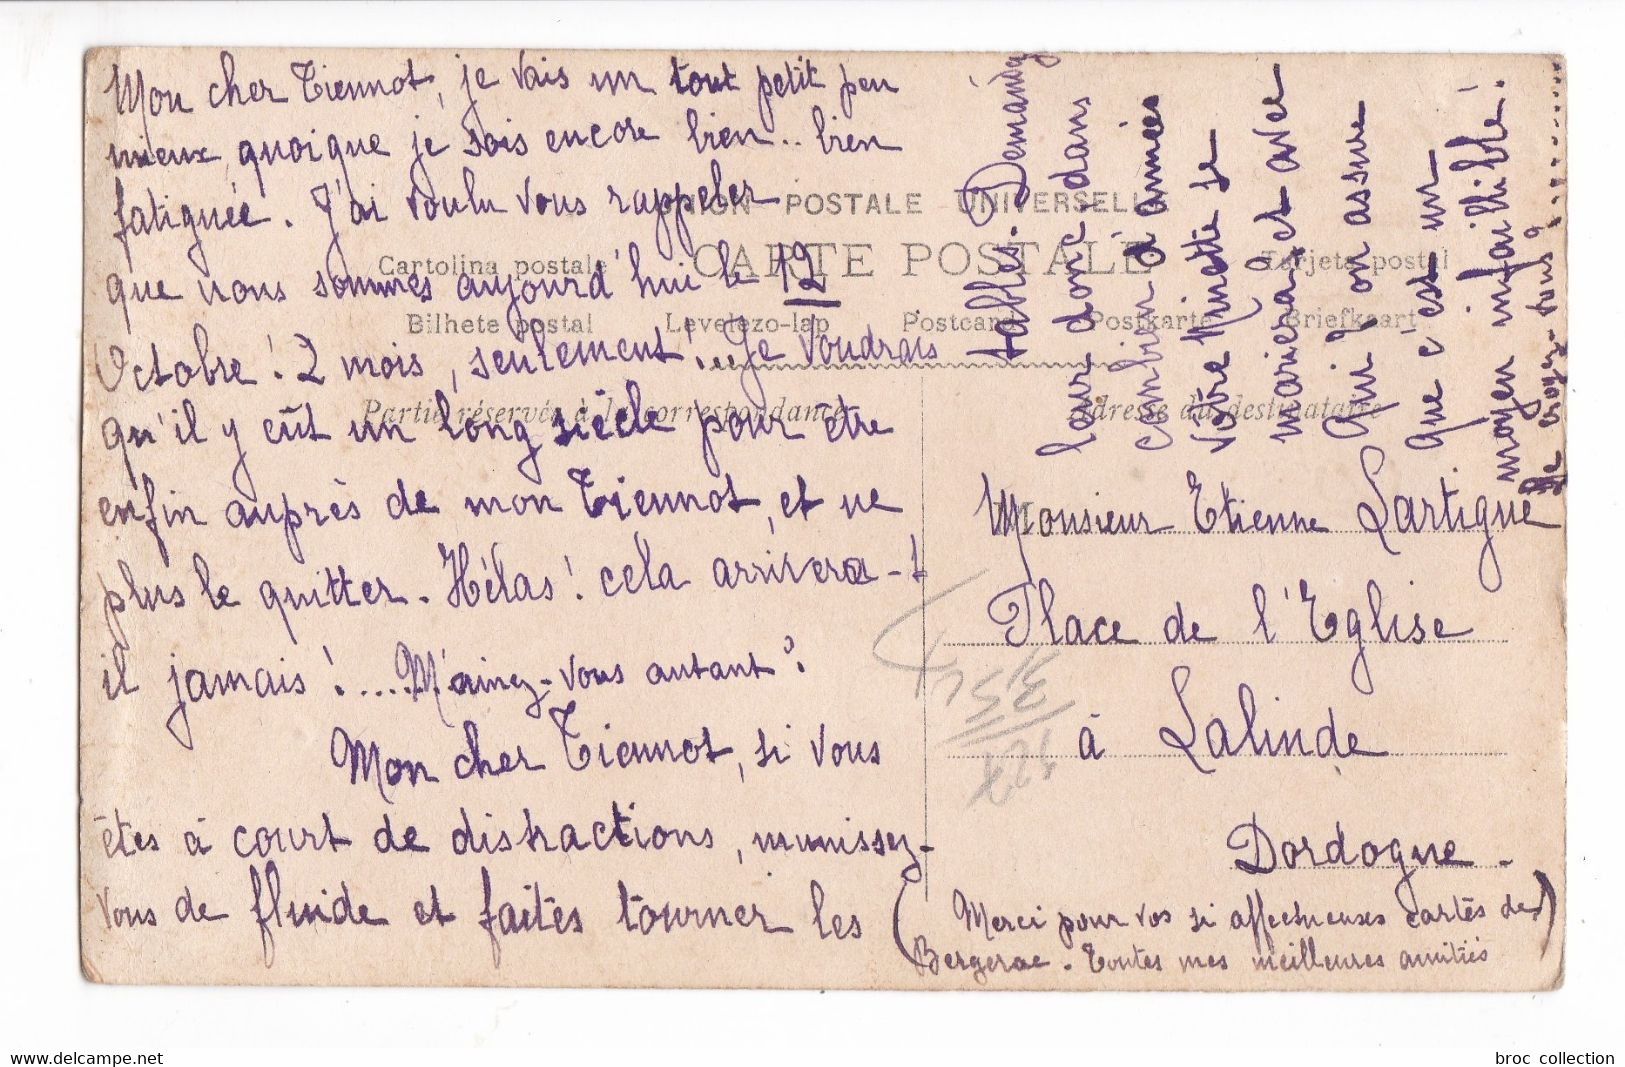 Mon cher Tiennot, je vais un tout petit peu
mieux, quoique je sois encore bien.. bien
fatiguée. J'ai voulu vous rappeler
que nous sommes aujourd'hui le 12
Octobre! 2 mois, seulement! Je voudrais
qu'il y eût un long siècle pour être
enfin auprès de mon Tiennot, et ne
plus le quitter. Hélas! cela arrivera-t-
il jamais!....M'aimez-vous autant?
Mon cher Tiennot, si vous
êtes à court de distractions, munissez-
vous de fluide et faites tourner les
tables. Demandez
leur donc dans
combien d'années
votre Minette se
mariera, et avec
qui? on assure
que c'est un
moyen infaillible!
Le croyez-vous?
UNION POSTALE UNIVERSELLE
CARTE POSTALE
Cartolina postale
Tarjeta postal
Bilhete postal
Levelezo-lap
Postcard
Postkarte
Briefkaart
Partie réservée à la correspondance
Adresse du destinataire
Monsieur Etienne Lartigue
Place de l'Eglise
à Lalinde
Dordogne.
(Merci pour vos si affectueuses cartes de)
Bergerac. Toutes mes meilleures amitiés
broc collection